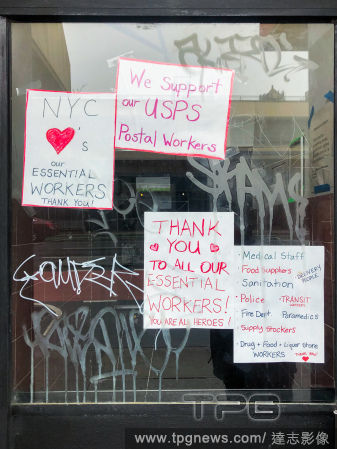 We Support
our USPS
Postal Workers
NYC
♥'s
our
ESSENTIAL
WORKERS
THANK YOU!
THANK
YOU
TO ALL OUR
ESSENTIAL
WORKERS!
YOU ARE ALL HEROES!
Medical Staff
Food Suppliers
Sanitation
Police
Fire Dept
Supply Stockers
Drug + Food + Liquor Store
WORKERS
DELIVERY
PEOPLE
TRANSIT
WORKERS
Paramedics
THANK YOU!
TPG
www.tpgnews.com/ 達志影像